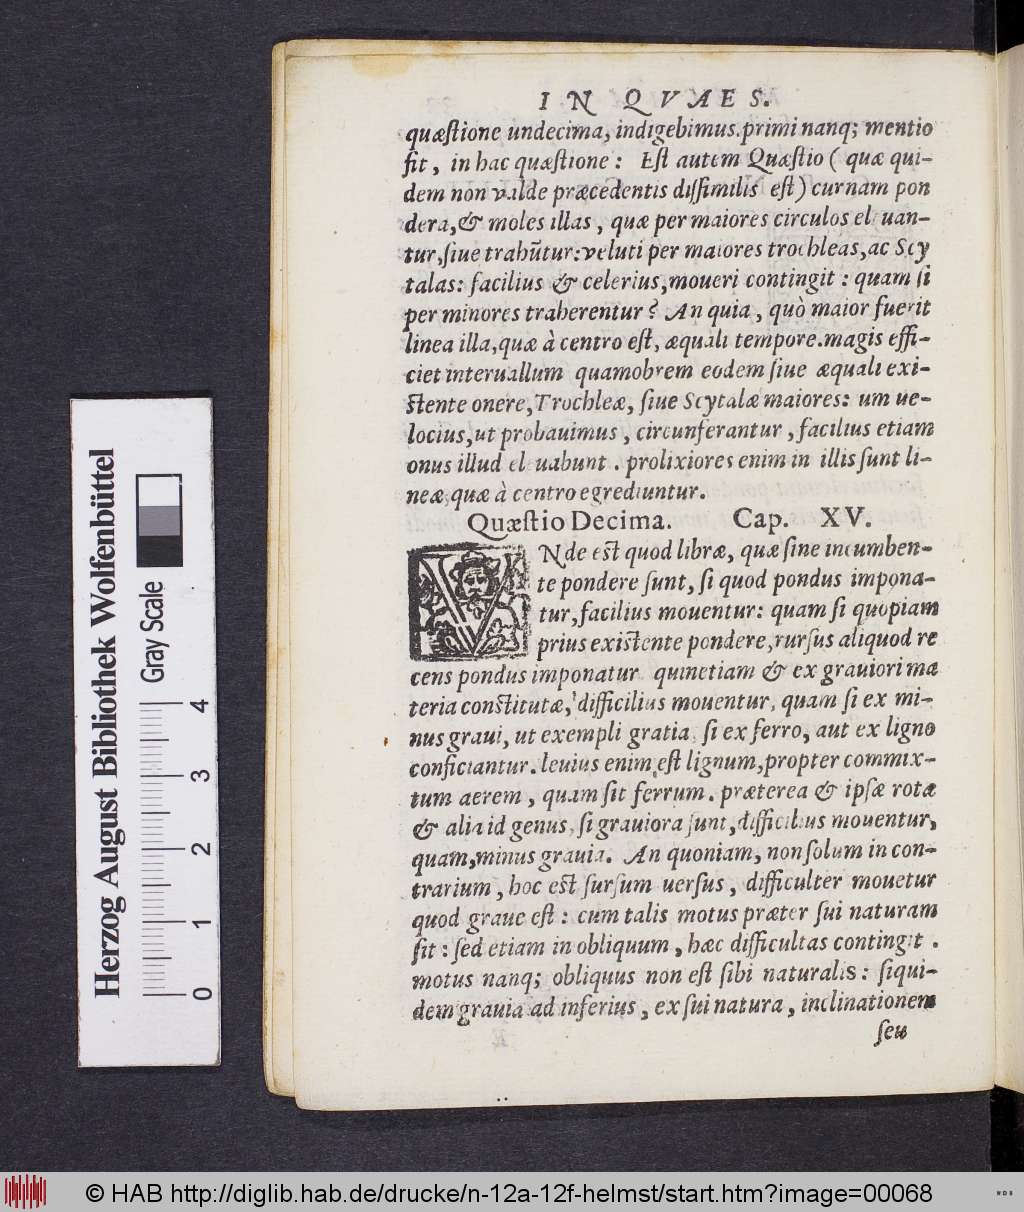 IN QVAES.
quæſtione undecima, indigebimus. primi nanq; mentio
fit, in hac quæſtione: Eſt autem Quæſtio (quæ qui-
dem non valde præcedentis diſſimilis eſt) cur nam pon
dera, & moles illas, quæ per maiores circulos eleuan-
tur, ſiue trahũtur: veluti per maiores trochleas, ac Scy
talas: facilius & celerius, moueri contingit: quam ſi
per minores traherentur? An quia, quò maior fuerit
linea illa, quæ à centro eſt, æquali tempore. magis effi-
ciet interuallum quamobrem eodem ſiue æquali exi-
ſtente onere, Trochleæ, ſiue Scytalæ maiores: um ue-
locius, ut probauimus, circunferantur, facilius etiam
onus illud eleuabunt. prolixiores enim in illis ſunt li-
neæ, quæ à centro egrediuntur.
Quæſtio Decima. Cap. XV.
VNde eſt quod libræ, quæ ſine incumben-
te pondere ſunt, ſi quod pondus impona-
tur, facilius mouentur: quam ſi quopiam
prius exiſtente pondere, rurſus aliquod re
cens pondus imponatur quinetiam & ex grauiori ma
teria conſtitutæ, difficilius mouentur, quam ſi ex mi-
nus graui, ut exempli gratia ſi ex ferro, aut ex ligno
conficiantur. leuius enim eſt lignum, propter commix-
tum aerem, quam ſit ferrum. præterea & ipſæ rotæ
& alia id genus, ſi grauiora ſunt, difficilius mouentur,
quam, minus grauia. An quoniam, non ſolum in con-
trarium, hoc eſt ſurſum uerſus, difficulter mouetur
quod graue eſt: cum talis motus præter ſui naturam
fit: ſed etiam in obliquum, hæc difficultas contingit.
motus nanq; obliquus non eſt ſibi naturalis: ſiqui-
dem grauia ad inferius, ex ſui natura, inclinationem
ſeu
Herzog August Bibliothek Wolfenbüttel
Gray Scale
0 1 2 3 4
© HAB http://diglib.hab.de/drucke/n-12a-12f-helmst/start.htm?image=00068